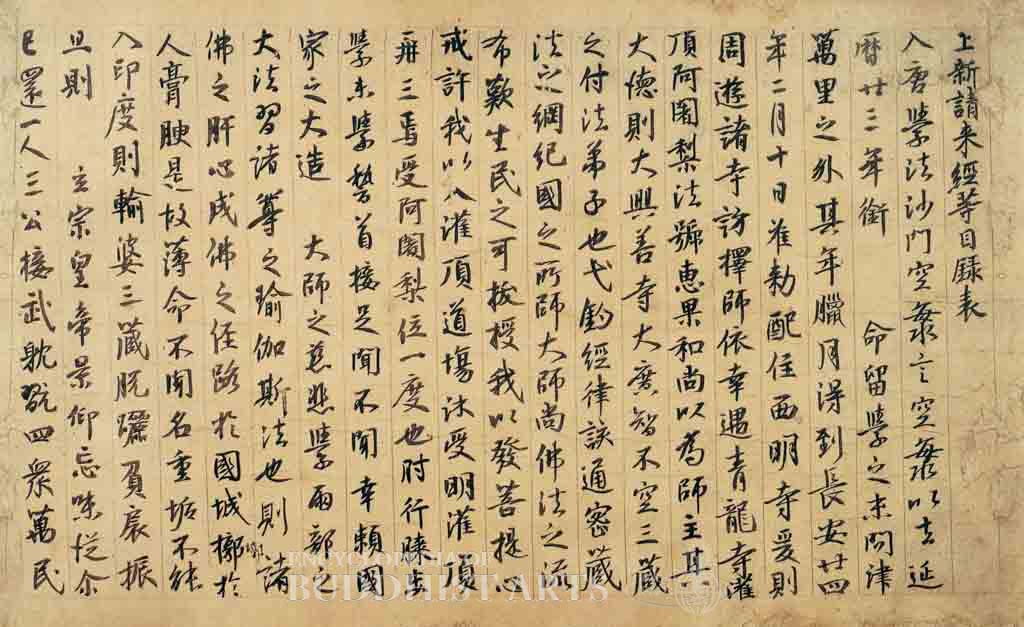 上新請来經等目録表
入唐學法沙門空海言空海以去延
曆廿三年銜　命留學之末問津
萬里之外其年臘月得到長安廿四
年二月十日准勅配住西明寺爰則
周遊諸寺訪擇師依幸遇青龍寺灌
頂阿闍梨法號惠果和尚以為師主其
大德則大興善寺大廣智不空三藏
之付法弟子也弋釣經律該通密藏
法之綱紀國之所師大師尚佛法之流
布歎生民之可拔授我以發菩提心
戒許我以入灌頂道場沐受明灌頂
再三焉受阿闍梨位一度也肘行膝步
學未學稽首接足聞不聞幸頼國
家之大造　大師之慈悲學兩部之
大法習諸尊之瑜伽斯法也則諸
佛之肝心成佛之徑路於國城墎於
人膏腴是故薄命不聞名重垢不能
入印度則輸婆三藏脱躧負扆振
旦則　玄宗皇帝景仰忘味従尒
已還一人三公接武耽翫四衆萬民
ENCYCLOPEDIA OF
BUDDHIST ARTS